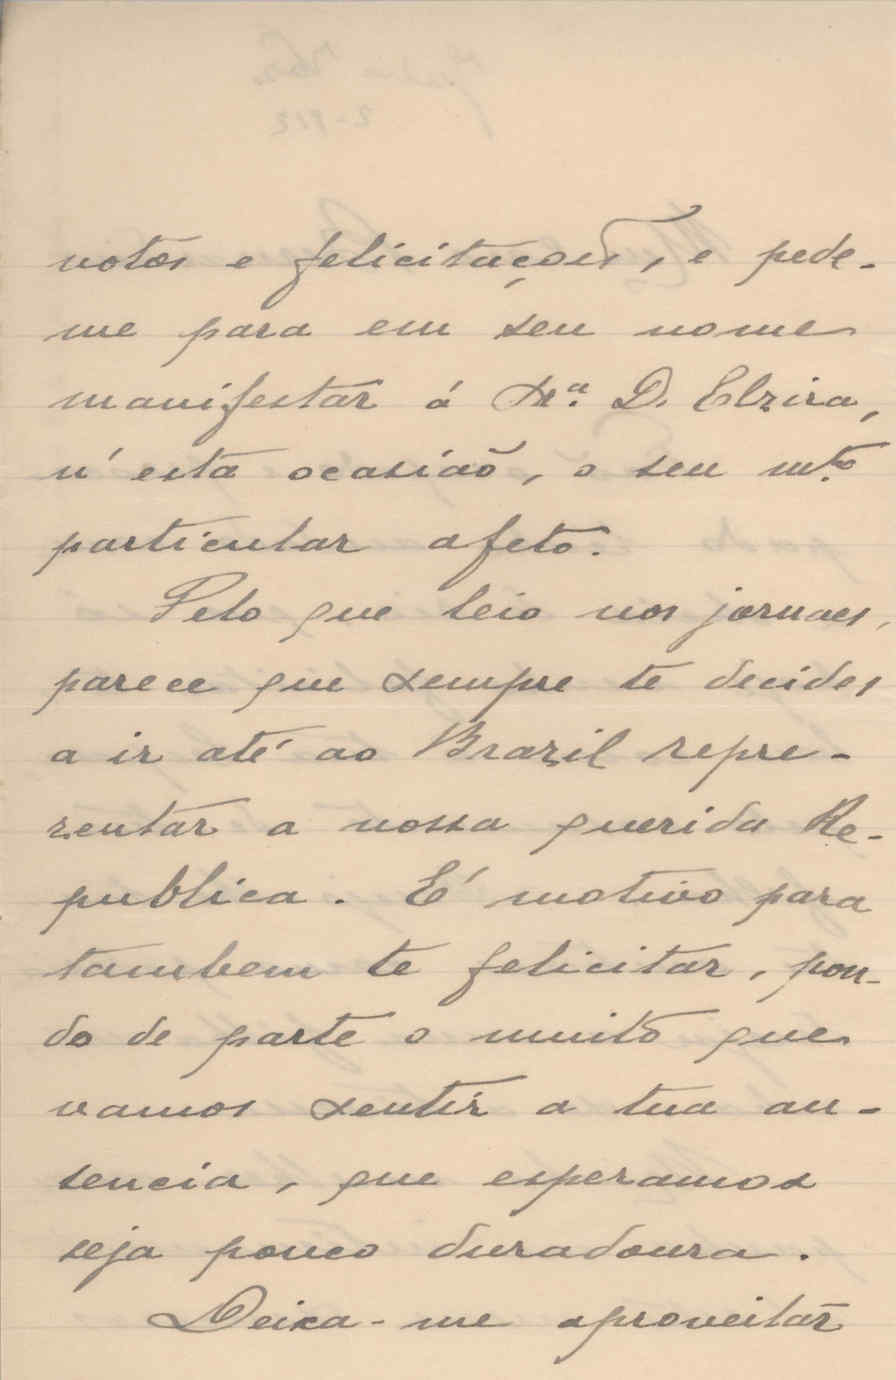 votos e felicitações, e pede-
me para em seu nome
manifestar á Srª. D. Elzira,
n'esta ocasiaõ, o seu mto.
particular afeto.
Pelo que leio nos jornaes,
parece que sempre te decides
a ir até ao Brazil repre-
zentar a nossa querida Re-
publica. É motivo para
tambem te felicitar, pon-
do de parte o muito que
vamos sentir a tua au-
sencia, que esperamos
seja pouco duradoura.
Deixa-me aproveitar